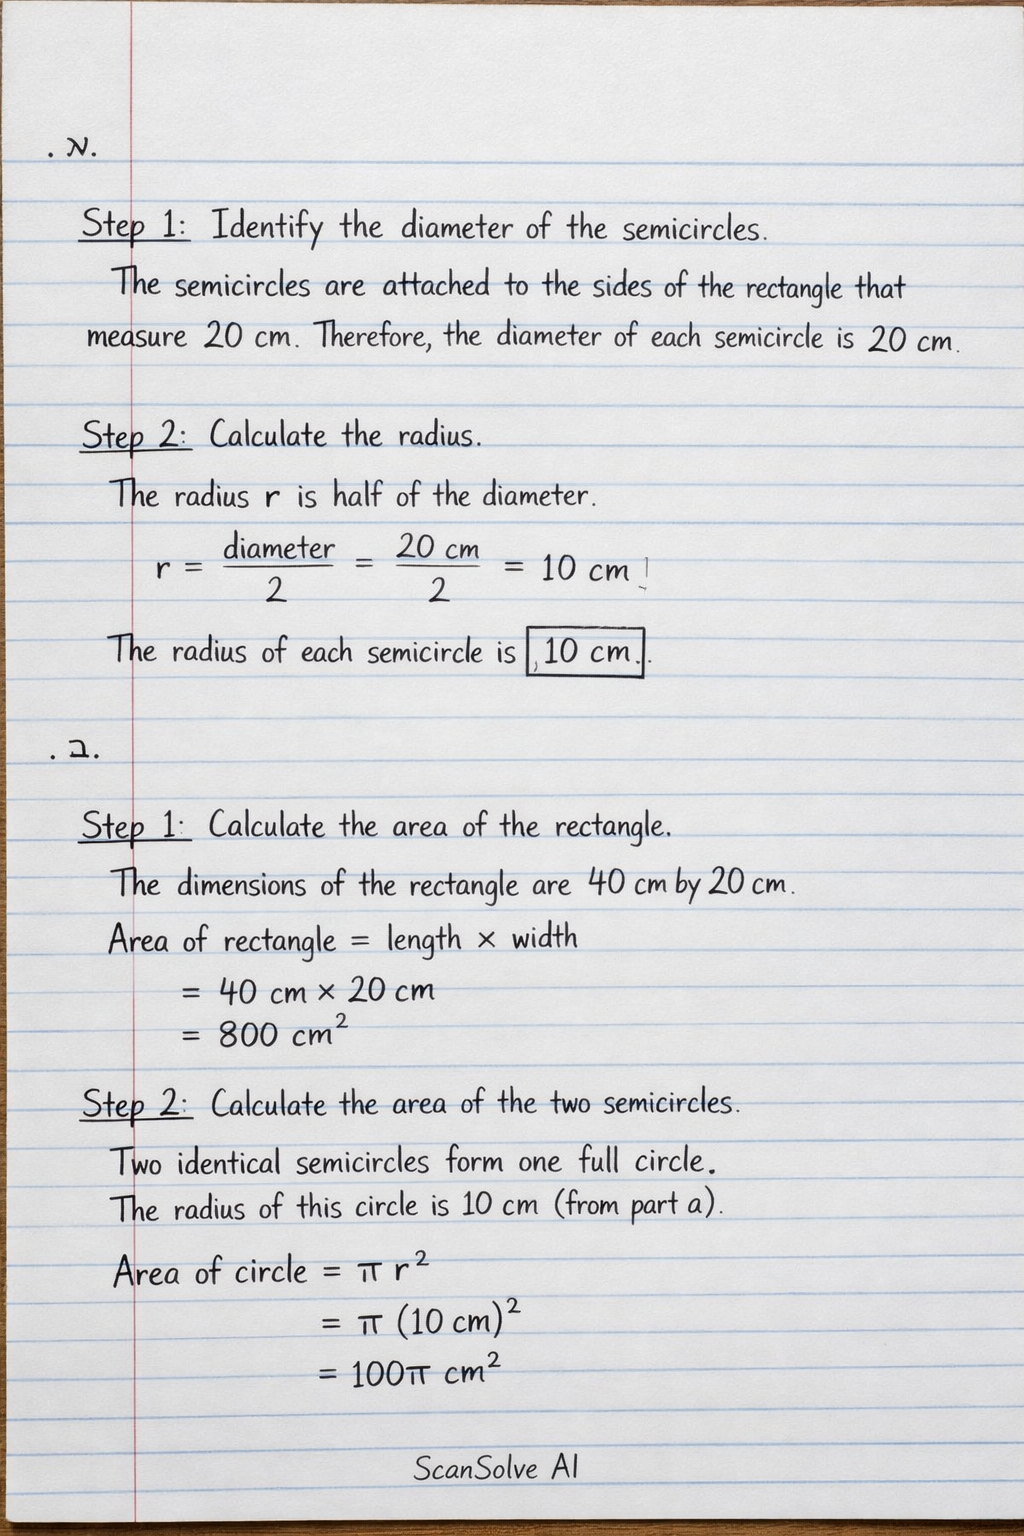 . א.
Step 1: Identify the diameter of the semicircles.
The semicircles are attached to the sides of the rectangle that
measure 20 cm. Therefore, the diameter of each semicircle is 20 cm.
Step 2: Calculate the radius.
The radius r is half of the diameter.
r = diameter/2 = 20 cm/2 = 10 cm
The radius of each semicircle is 10 cm.
. ב.
Step 1: Calculate the area of the rectangle.
The dimensions of the rectangle are 40 cm by 20 cm.
Area of rectangle = length × width
= 40 cm × 20 cm
= 800 cm²
Step 2: Calculate the area of the two semicircles.
Two identical semicircles form one full circle.
The radius of this circle is 10 cm (from part a).
Area of circle = π r²
= π (10 cm)²
= 100π cm²
ScanSolve AI